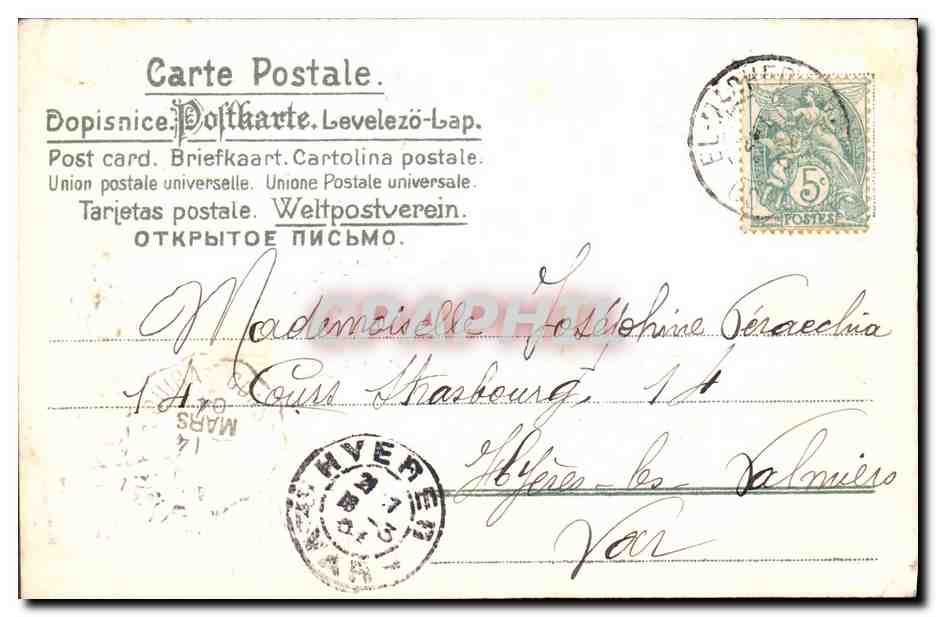 Carte Postale.
Dopisnice. Postkarte. Levelezö-Lap.
Post card. Briefkaart. Cartolina postale.
Union postale universelle. Unione Postale universale.
Tarjetas postale. Weltpostverein.
ОТКРЫТОЕ ПИСЬМО.
5c
POSTES
Mademoiselle Joséphine Peracchia
14 Cours Strasbourg 14
Hyères-les-Palmiers
Var
14
MARS
04
HYERES
VAR